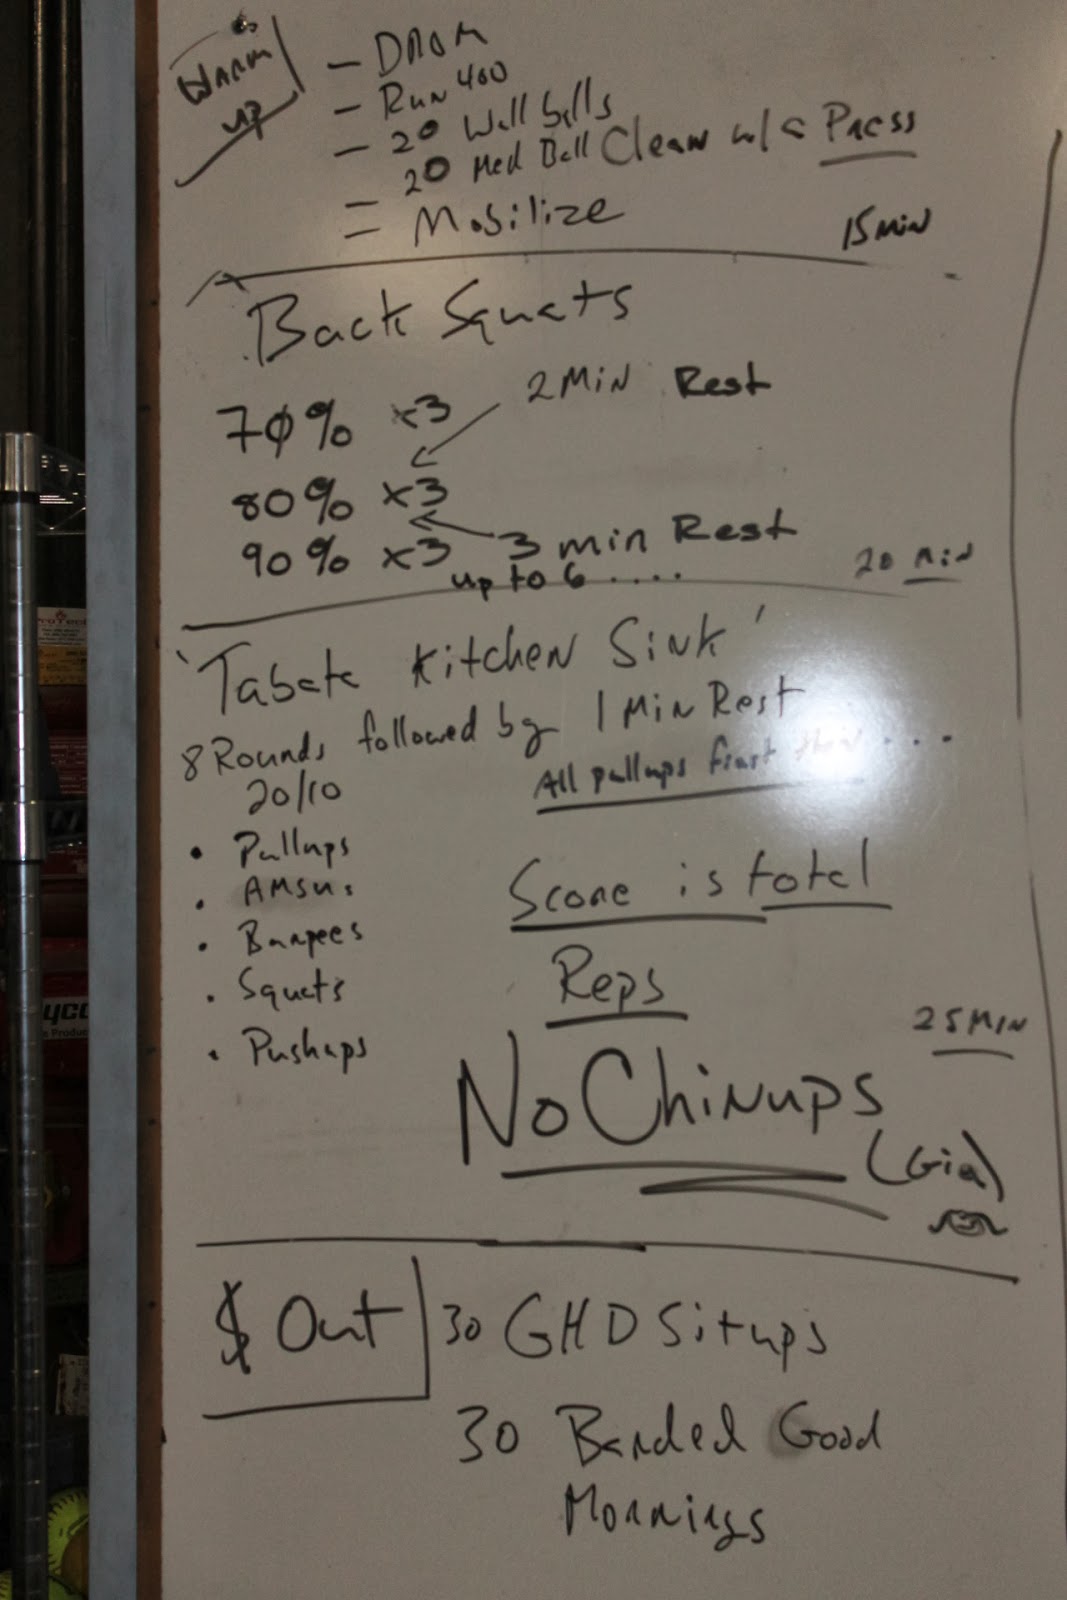 WARM
UP
- DROM
- Run 400
- 20 Wall balls
20 Med Ball Clean w/ a Press
= Mobilize
15 Min
Back Squats
70% x3
2 Min Rest
80% x3
90% x3
3 min Rest
up to 6 ....
20 Min
'Tabata Kitchen Sink'
8 Rounds followed by 1 Min Rest
20/10
All pullups first then ...
• Pullups
• AMSUs
• Burpees
• Squats
• Pushups
Score is total
Reps
25 Min
No Chinups
(Gia)
$ Out
30 GHD Situps
30 Banded Good
Mornings